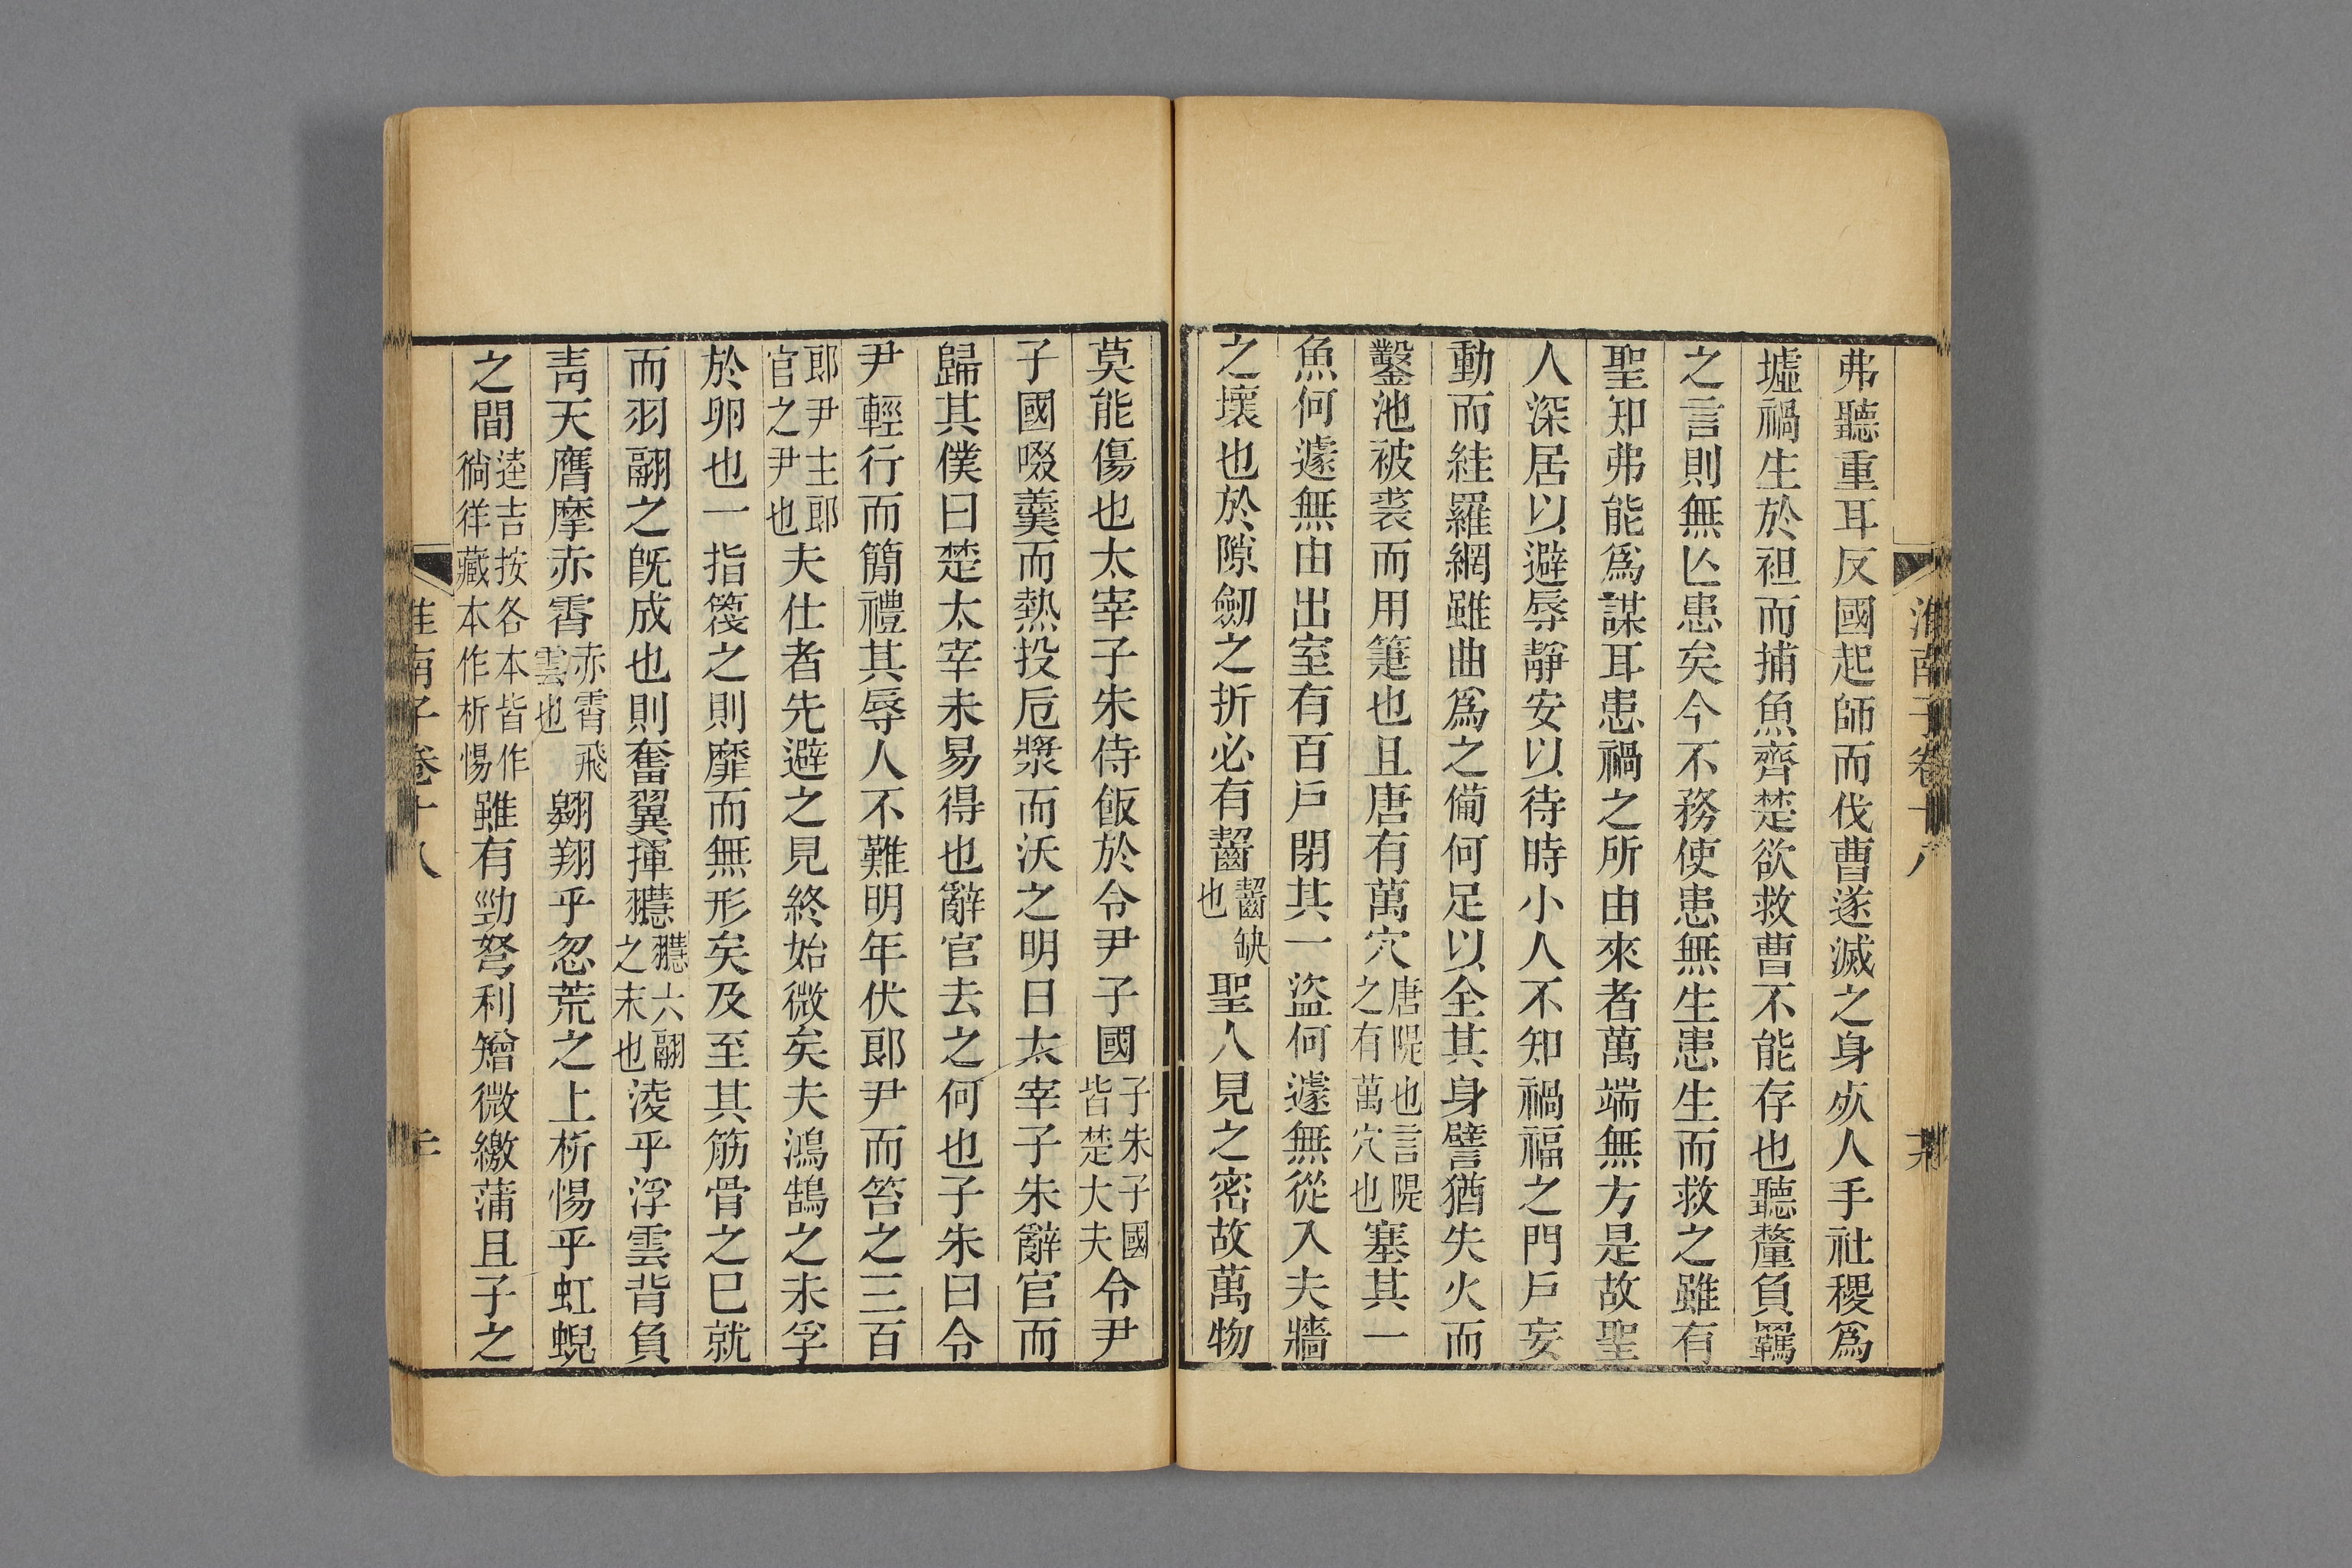 弗聽重耳反國起師而伐曹遂滅之身死人手社稷爲
墟禍生於袒而捕魚齊楚欲救曹不能存也聽釐負羈
之言則無亾患矣今不務使患無生患生而救之雖有
聖知弗能爲謀耳患禍之所由來者萬端無方是故聖
人深居以避辱靜安以待時小人不知禍福之門戸妄
動而絓羅網雖曲爲之備何足以全其身譬猶失火而
鑿池被裘而用箑也且唐有萬穴唐隄也言隄之有萬穴也塞其一
魚何遽無由出室有百戸閉其一盜何遽無從入夫牆
之壞也於隙劒之折必有齧齧缺也聖人見之密故萬物
莫能傷也太宰子朱侍飯於令尹子國子朱子國皆楚大夫令尹
子國啜羹而熱投卮漿而沃之明日太宰子朱辭官而
歸其僕曰楚太宰未易得也辭官去之何也子朱曰令
尹輕行而簡禮其辱人不難明年伏郎尹而笞之三百
郎尹主郎官之尹也夫仕者先避之見終始微矣夫鴻鵠之未孚
於卵也一指篾之則靡而無形矣及至其筋骨之已就
而羽翮之旣成也則奮翼揮䎚䎚六翮之末也淩乎浮雲背負
靑天膺摩赤霄赤霄飛雲也翺翔乎忽荒之上析惕乎虹蜺
之間逵吉按各本皆作徜徉藏本作析惕雖有勁弩利矰微繳蒲且子之
淮南子卷十八
淮南子卷十八